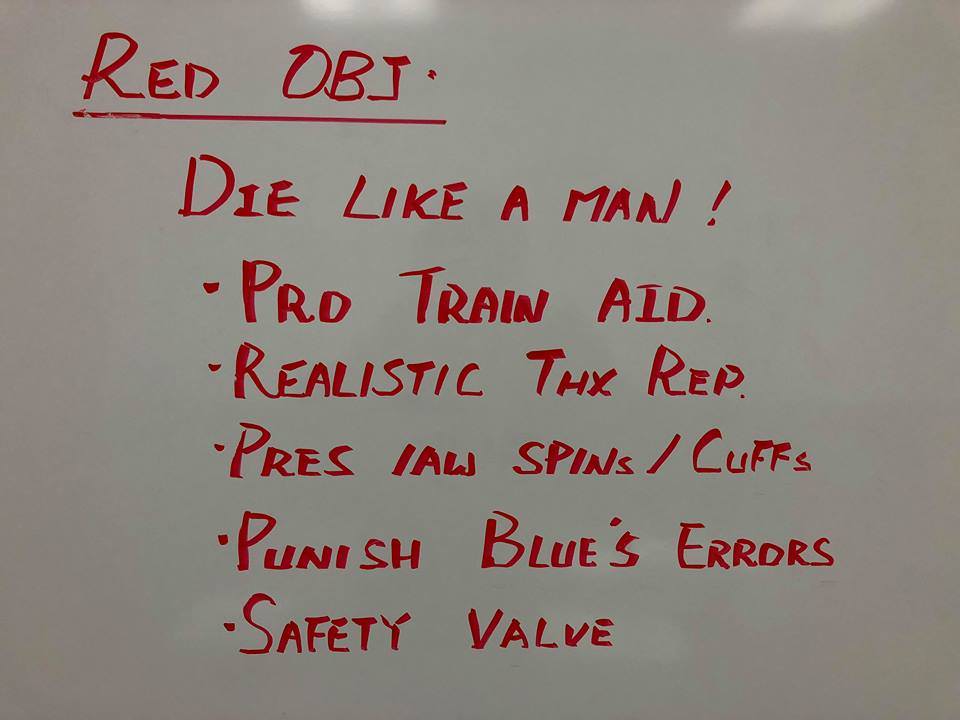 RED OBJ.
DIE LIKE A MAN!
· PRO TRAIN AID.
· REALISTIC THX REP.
· PRES IAW SPINs / CUFFs
· PUNISH BLUE'S ERRORS
· SAFETY VALVE